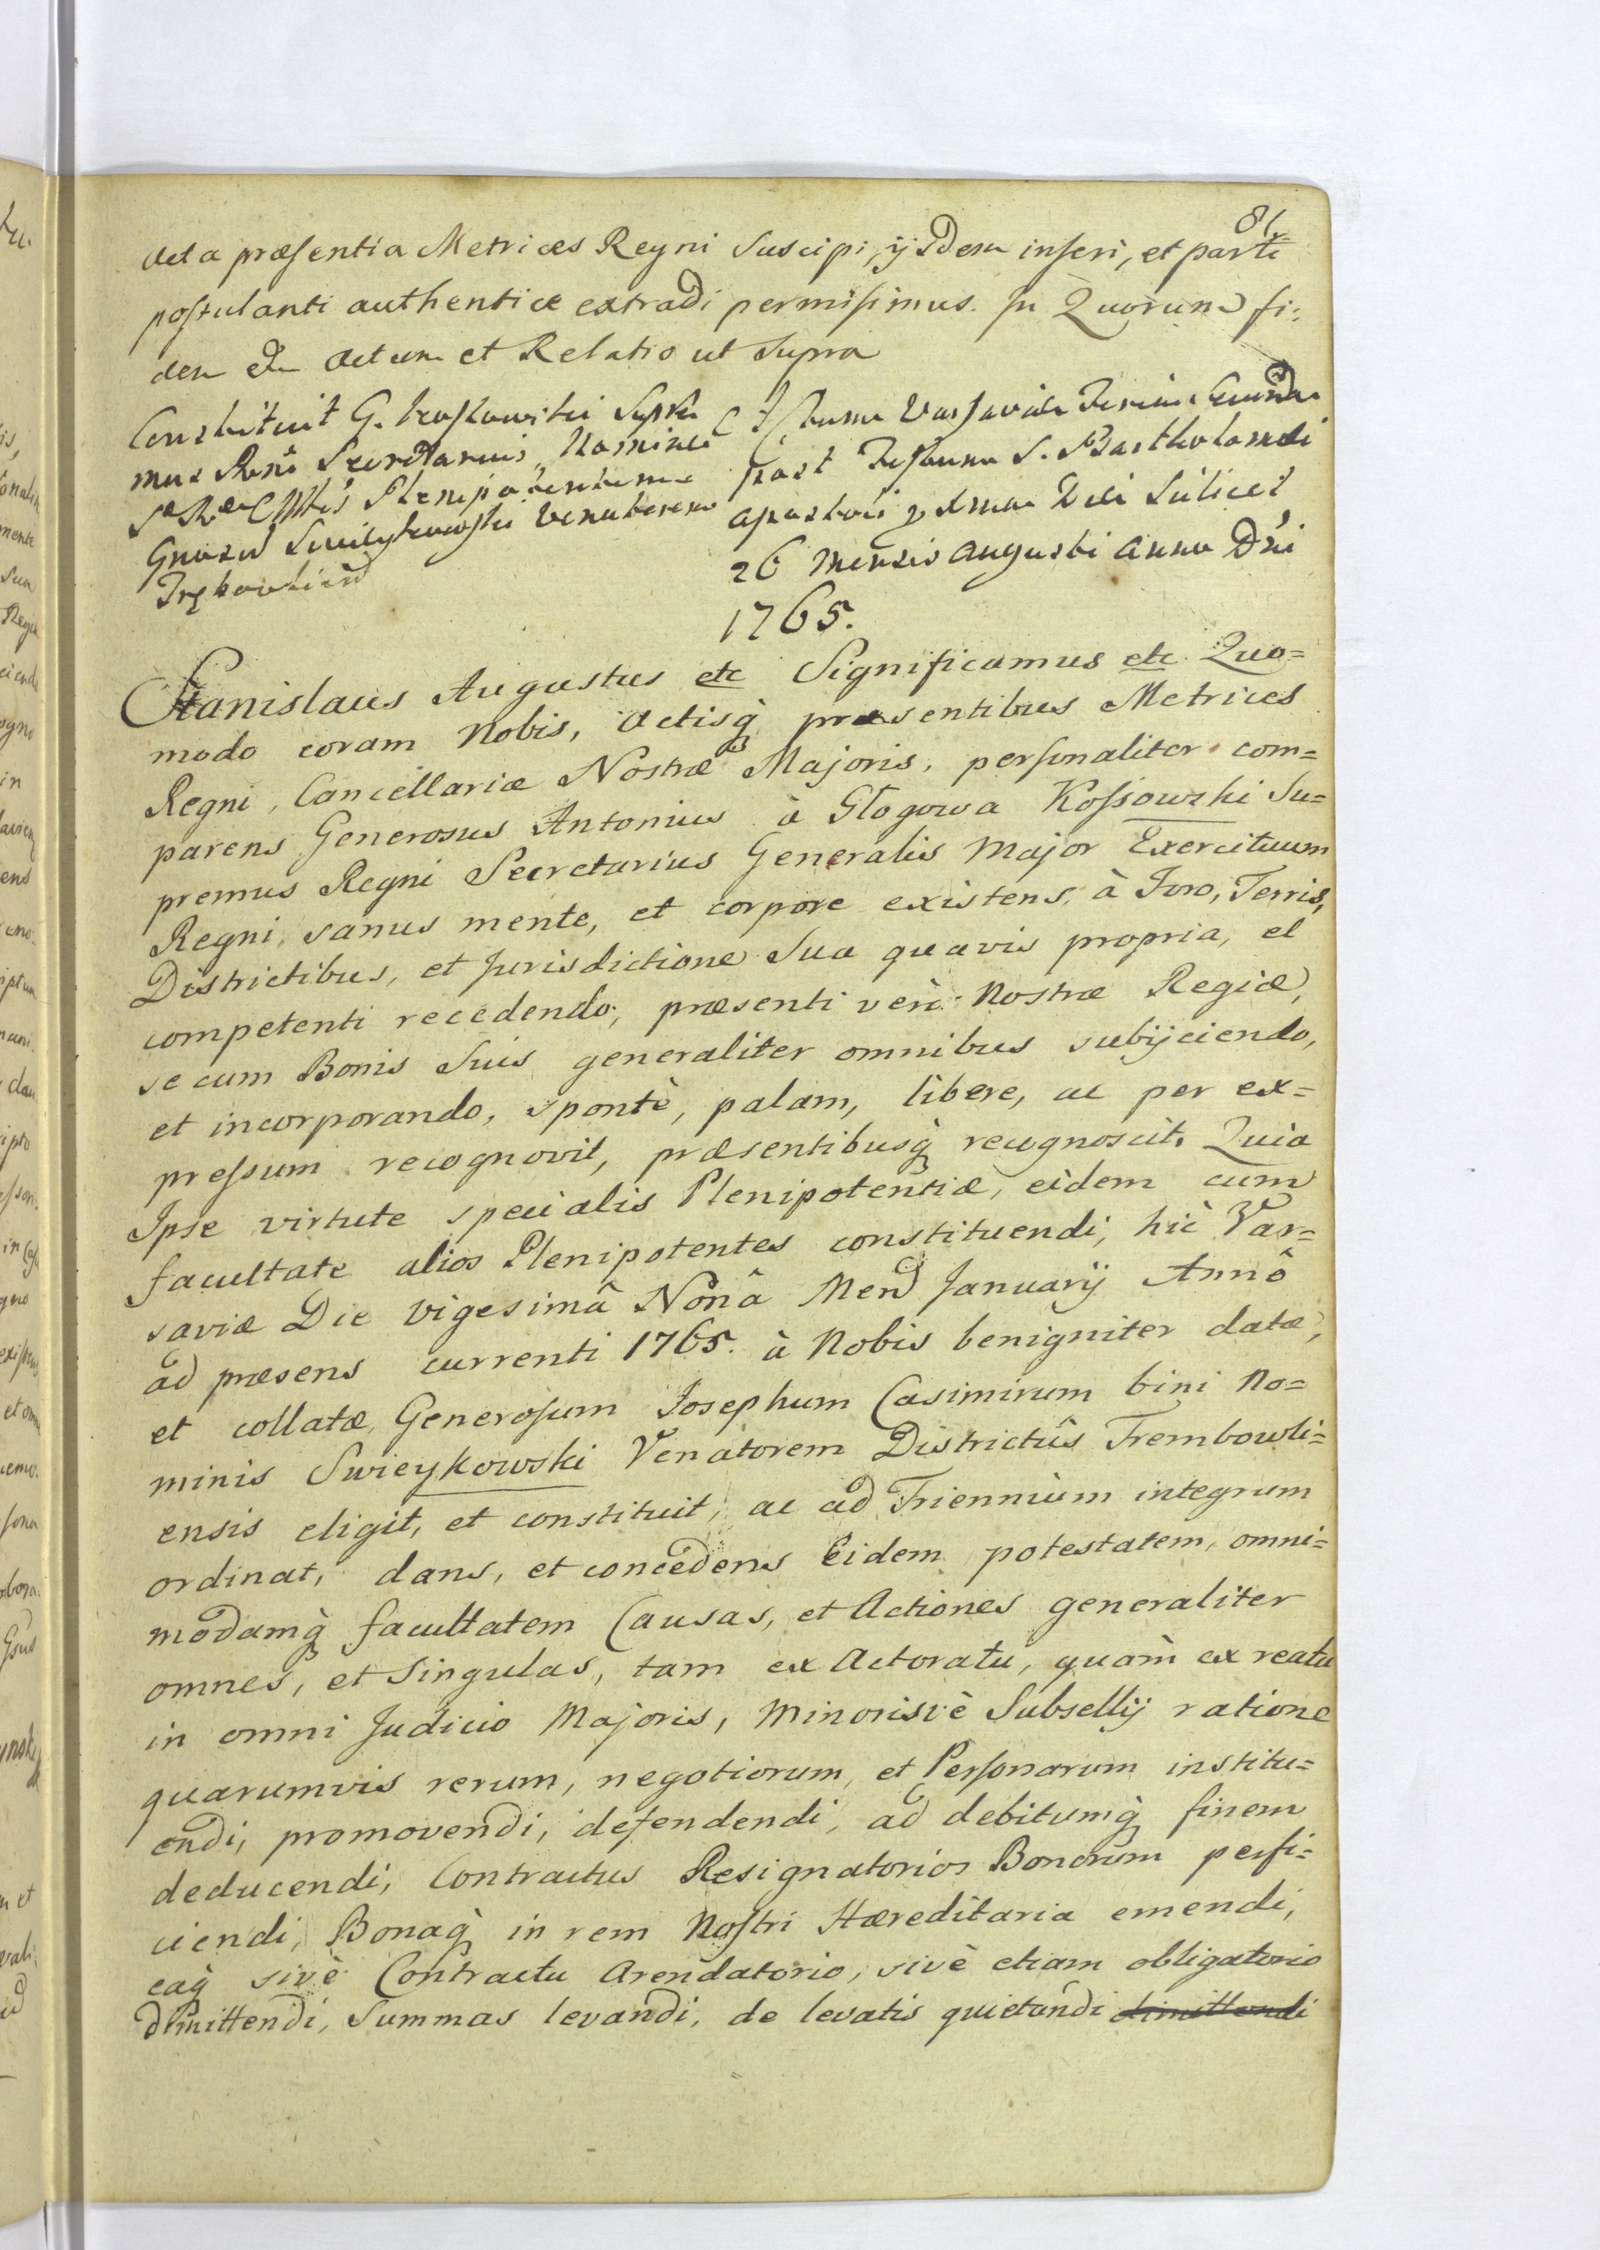 81
acta præsentia Metrices Regni Suscipi, ijsdem inseri, et parti
postulanti authenticæ extradi permisimus. In Quorum fi:
dem & Actum et Relatio ut supra
Constituit G. Kossowski Supre
mus Rni Secretarius, Nomine
S. R. Mtis Plenipotentem
Gnosum Swieykowski Venatorem
Trębowlien
Actum Varsaviæ Feria Secunda
post Festum S. Bartholomæi
Apostoli proxima Die Scilicet
26 Mensis Augusti Anno Dni
1765.
Stanislaus Augustus etc Significamus etc Quo=
modo coram Nobis, Actisq præsentibus Metrices
Regni, Cancellariæ Nostræ Majoris, personaliter com=
parens Generosus Antonius à Głogowa Kossowski Su=
premus Regni Secretarius Generalis Major Exercituum
Regni, sanus mente, et corpore existens, à Foro, Terris,
Districtibus, et Jurisdictione Sua quavis propria, et
competenti recedendo, præsenti verò Nostræ Regiæ,
se cum Bonis Suis generaliter omnibus subijciendo,
et incorporando, spontè, palam, libere, ac per ex=
pressum recognovit, præsentibusq recognoscit. Quia
Ipse virtute specialis Plenipotentiæ, eidem cum
facultate alios Plenipotentes constituendi, hic Var=
saviæ Die Vigesimâ Nonâ Men Januarij Annô
ad præsens currenti 1765. à Nobis benigniter datæ,
et collatæ, Generosum Josephum Casimirum bini No=
minis Swieykowski Venatorem Districtûs Trembowli=
ensis eligit, et constituit, ac ad Triennium integrum
ordinat, dans, et concedens Eidem potestatem, omni=
modamq facultatem Causas, et Actiones generaliter
omnes, et Singulas, tam ex Actoratu, quàm ex reatu
in omni Judicio Majoris, Minorisvè Subsellij ratione
quarumvis rerum, negotiorum, et Personarum institu=
endi, promovendi, defendendi, ad debitumq finem
deducendi, Contractus Resignatorios Bonorum perfi=
ciendi, Bonaq in rem Nostri Hæreditaria emendi,
eaq sivè Contractu Arendatorio, sivè etiam obligatorio
dimittendi, Summas levandi, de levatis quietandi dimittendi